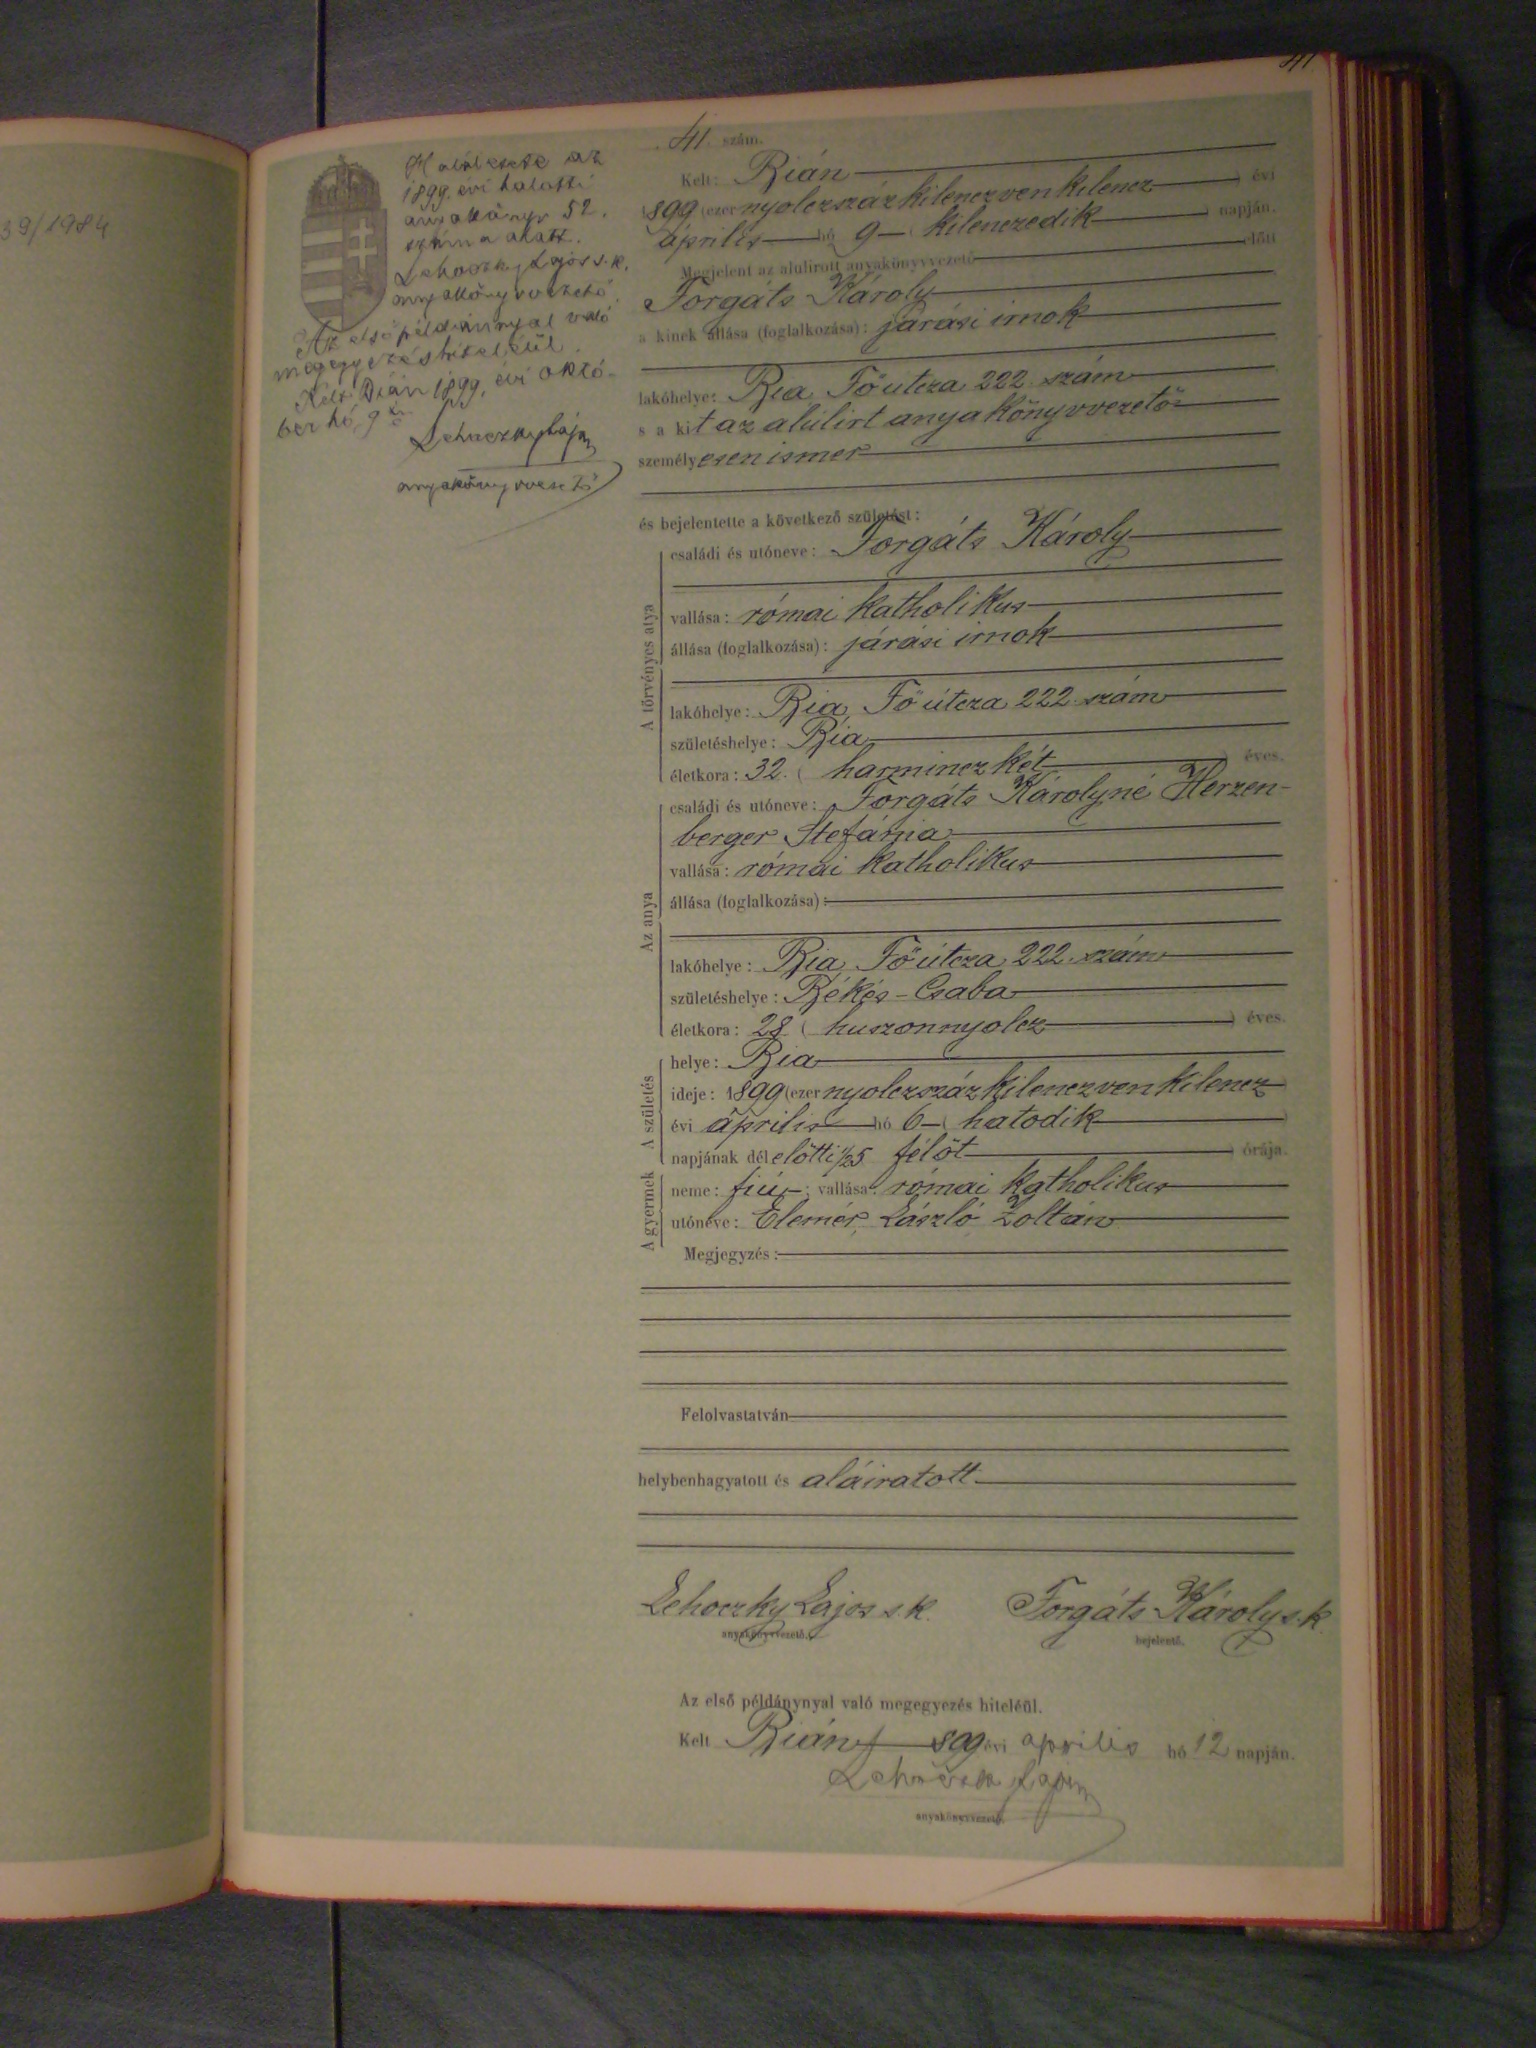 39/1984
41
Halálesete az
1899. évi halotti
anyakönyv 52.
száma alatt.
Lehoczky Lajos s. k.
anyakönyvvezető.
Az első példánynyal való
megegyezés hiteléül.
Kelt Bián 1899. évi októ-
ber hó 9
Lehoczky Lajos
anyakönyvvezető
41 szám.
Kelt: Bián
1899 (ezernyolczszázkilenczvenkilencz) évi
április hó 9 (kilenczedik) napján.
Megjelent az alulírott anyakönyvvezető előtt
Forgáts Károly
a kinek állása (foglalkozása): járási irnok
lakóhelye: Bia Fő utcza 222 szám
s a kit az alúlirt anyakönyvvezető
személyesen ismer
és bejelentette a következő születést:
A törvényes atya
családi és utóneve: Forgáts Károly
vallása: római katholikus
állása (foglalkozása): járási irnok
lakóhelye: Bia, Fő útcza 222 szám
születéshelye: Bia
életkora: 32. (harmincz két) éves.
Az anya
családi és utóneve: Forgáts Károlyné Herzen-
berger Stefánia
vallása: római katholikus
állása (foglalkozása):
lakóhelye: Bia, Fő útcza 222. szám
születéshelye: Békés-Csaba
életkora: 28 (huszonnyolcz) éves.
A születés
helye: Bia
ideje: 1899 (ezernyolczszázkilenczvenkilencz)
évi április hó 6 (hatodik)
napjának délelőtti 1/25 félöt órája.
A gyermek
neme: fiú; vallása: római katholikus
utóneve: Elemér, László, Zoltán
Megjegyzés:
Felolvastatván
helybenhagyatott és aláiratott
Lehoczky Lajos s. k. Forgáts Károly s. k.
anyakönyvvezető. bejelentő.
Az első példánynyal való megegyezés hiteléül.
Kelt Bián 899 évi április hó 12 napján.
Lehoczky Lajos
anyakönyvvezető.